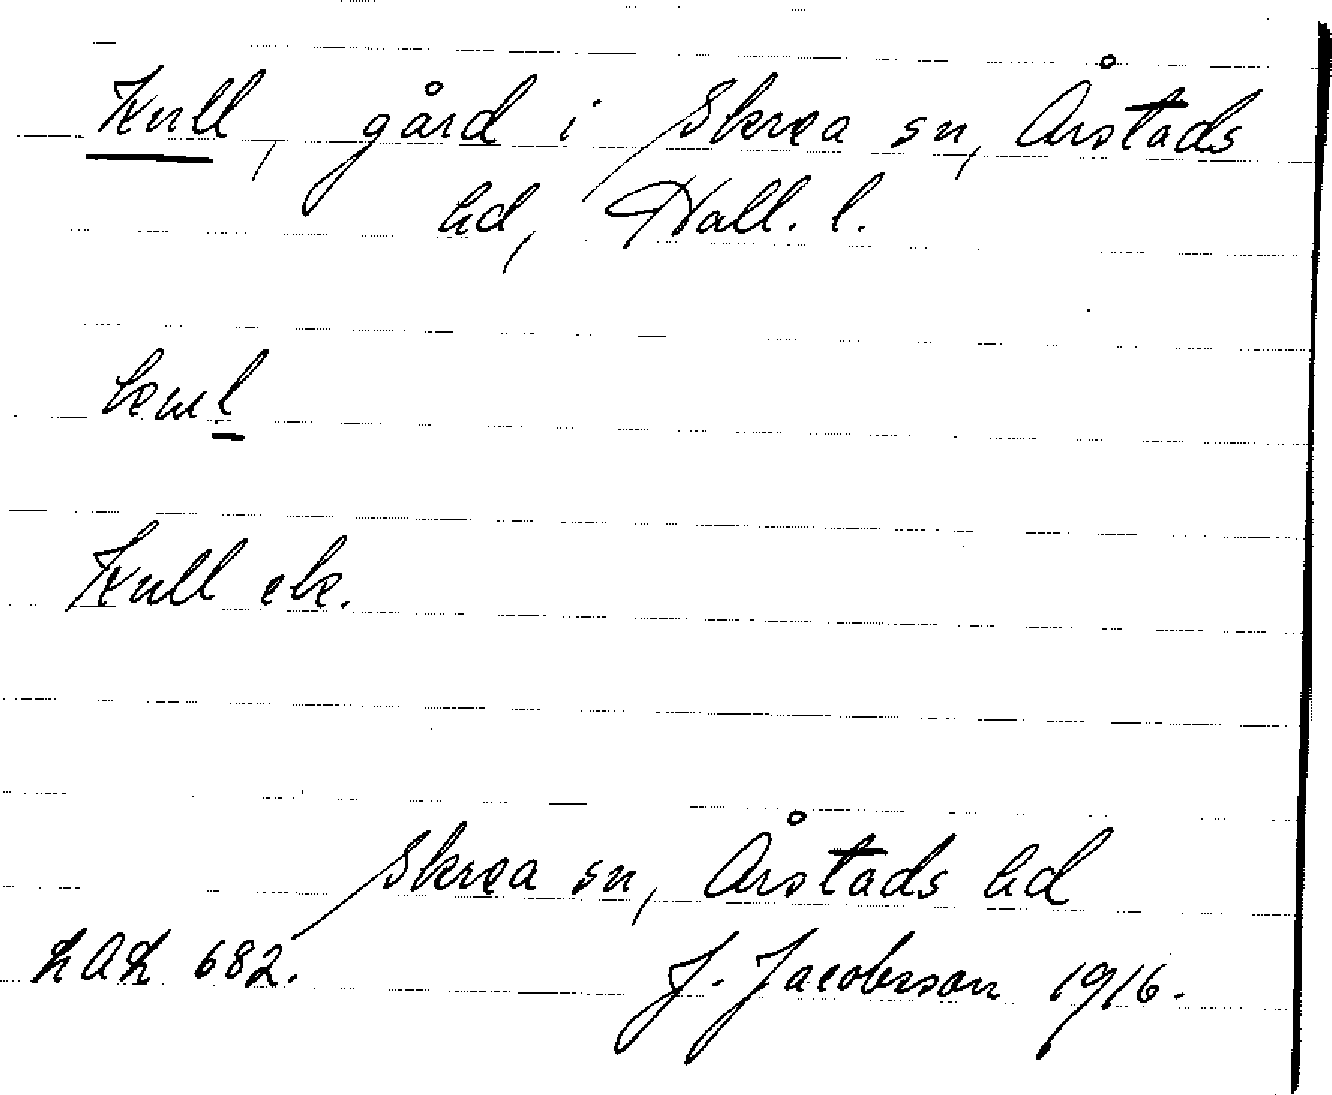 Kull, gård i Skrea sn, Årstads
hd, Hall. l.
kul
Kull ek.
Skrea sn, Årstads hd
682. J. Jacobsson 1916.